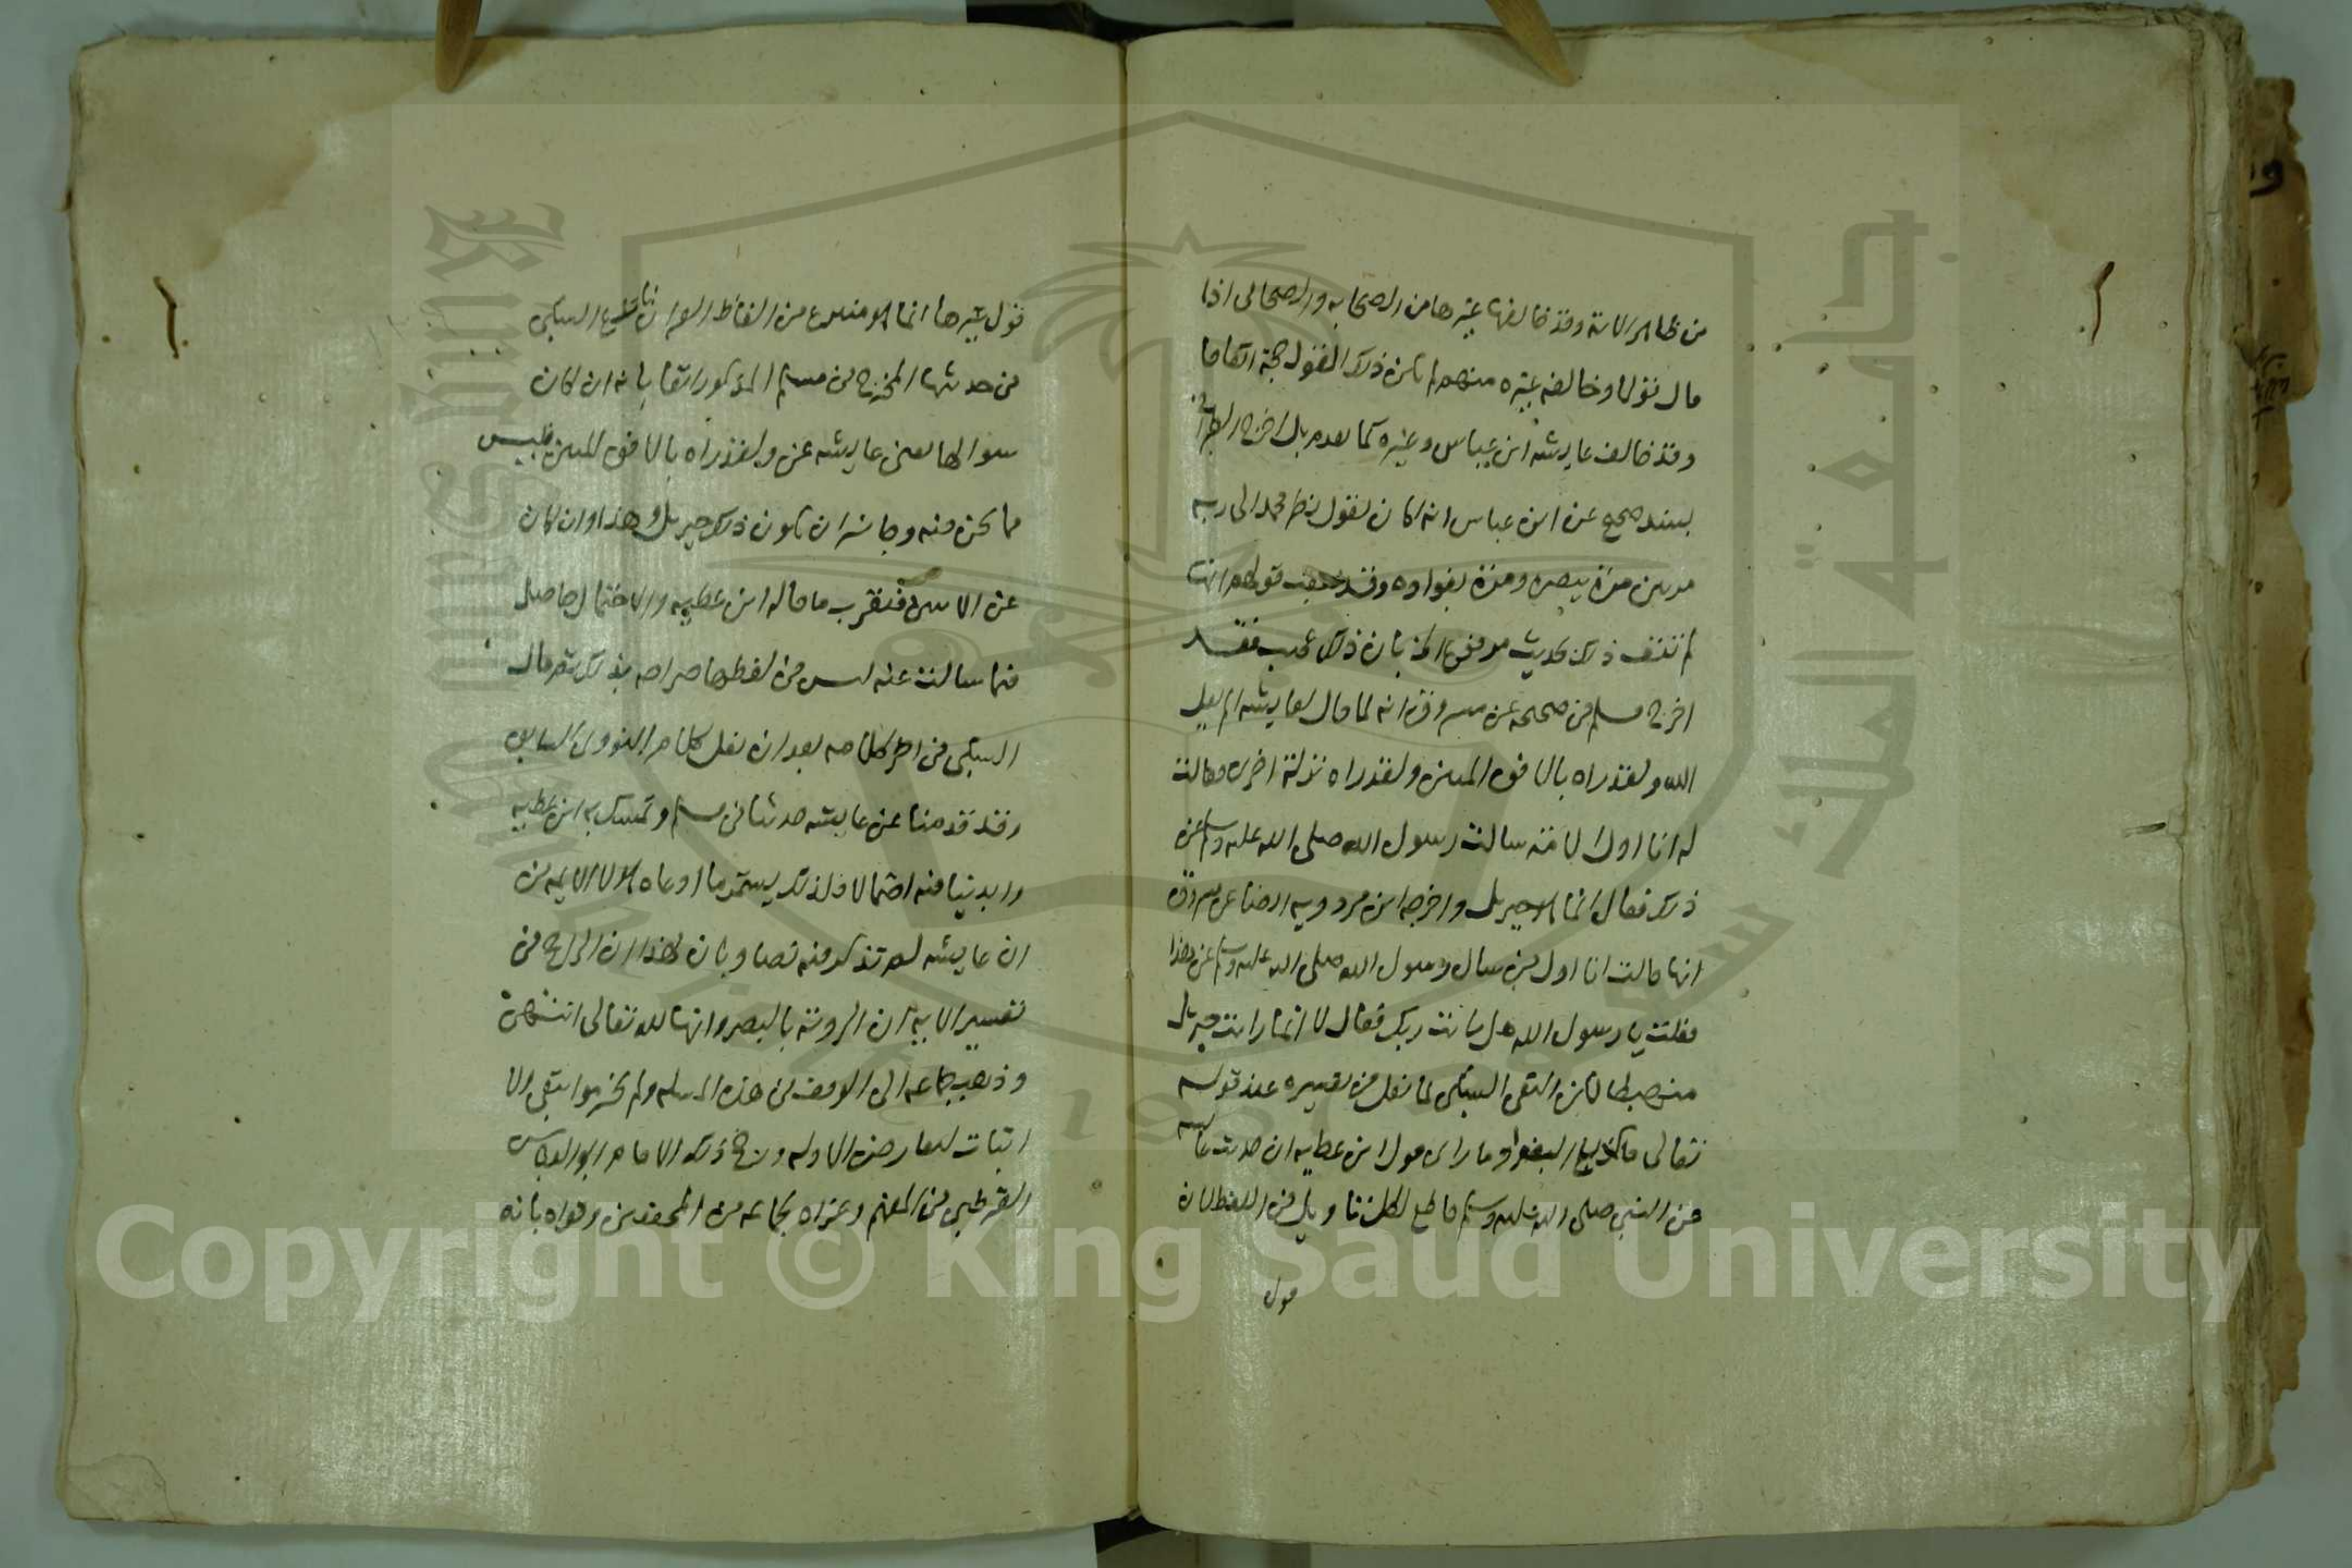 من ظاهر الاية وقد خالفها غيرها من الصحابه والصحابي اذا
قال قولا وخالفه غيره منهم لم يكن ذلك القول حجة اتفاقا
وقد خالف عايشه ابن عباس وغيره كما تقدم بل اخرج الطبراني
بسند صحيح عن ابن عباس انه كان يقول نظر محمد الى ربه
مرتين مرة ببصره ومرة بفواده وقد قولهم انها
لم تنف ذلك بحديث مرفوع بان ذلك عجيب فقد
اخرج مسلم في صحيحه عن مسروق انه لما قال لعايشه الم يقل
الله ولقد راه بالافق المبين ولقد راه نزلة اخرى وقالت
له انا اول الامة سالت رسول الله صلى الله عليه وسلم عن
ذلك فقال انما هو جبريل واخرجه ابن مردويه ايضا عن مسروق
انها قالت انا اول من سال رسول الله صلى الله عليه وسلم عن هذا
فقلت يا رسول الله هل رايت ربك فقال لا انما رايت جبريل
منهبطا لكن التقي السبكي لما نقل في تفسيره عند قوله
تعالى ما كذب الفواد ما راى قول ابن عطيه ان حديث عايشه
عن النبي صلى الله عليه وسلم قاطع لكل تاويل في اللفظ لان
قول
قول غيرها انما هو منتزع من الفاظ القران السبكي
في حديثها المخرج في مسلم المذكور انفا بانه ان كان
سوالها يعني عايشه عن ولقد راه بالافق المبين فليس
مما نحن فيه وجاز ان يكون ذلك جبريل وهذا وان كان
عن الايتين فيقرب ما قاله ابن عطيه والاحتمال حاصل
فيما سالت عنه ليس في لفظها صراحه بذلك ثم قال
السبكي في اخر كلامه بعد ان نقل كلام النووي السابق
وقد قدمنا عن عايشه حديثا في مسلم وتمسك به ابن عطيه
وابدينا فيه احتمالا فلذلك يستمر ما ادعاه هولا الايمه من
ان عايشه لم تذكر فيه نصا وبان بهذا ان الراجح في
تفسير الايه ان الرويه بالبصر وانها لله تعالى انتهى
وذهب جماعه الى الوقف في هذه المساله ولم يجزموا بنفي ولا
اثبات لتعارض الادله ورجح ذلك الامام ابو العباس
القرطبي في المفهم وعزاه لجماعه من المحققين وقواه بانه
Copyright © King Saud University